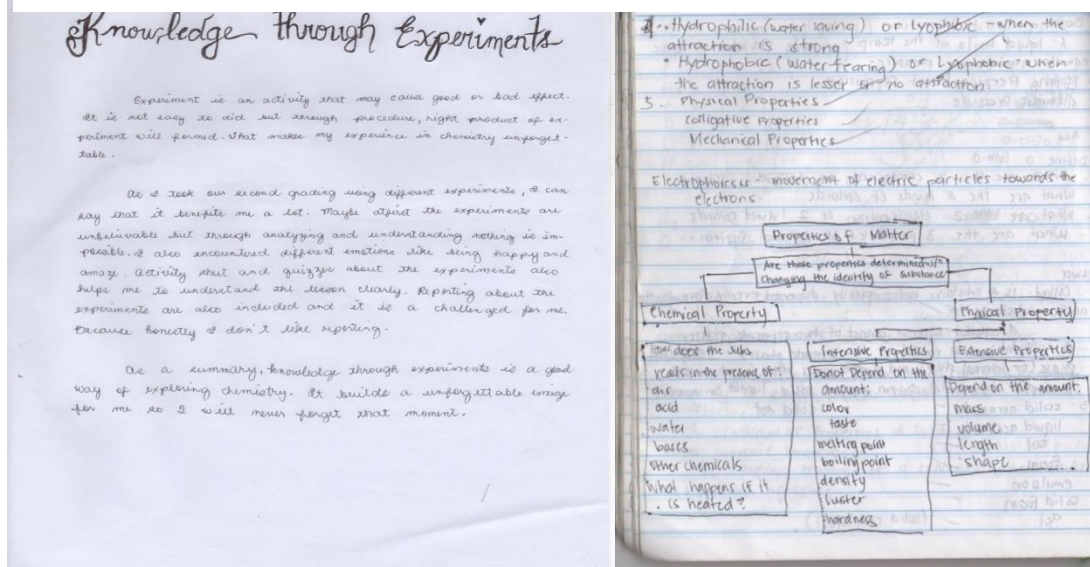 Knowledge through Experiments
Experiment is an activity that may cause good or bad effect.
It is not easy to did but through procedure, right product of ex-
periment will formed. That makes my experience in chemistry unforget-
table.
As I took our second grading using different experiments, I can
say that it benefits me a lot. Maybe atfirst the experiments are
unbelievable but through analyzing and understanding nothing is im-
posible. I also encountered different emotions like being happy and
amaze. Activity shit and quizzes about the experiments also
helps me to understand the lesson clearly. Reporting about the
experiments are also included and it is a challenged for me.
Because honestly I don't like reporting.
As a summary, knowledge through experiments is a good
way of exploring chemistry. It builds a unforgettable image
for me so I will never forget that moment.
4. • Hydrophilic (water loving) or Lyophibic - when the
attraction is strong
• Hydrophobic (water fearing) or Lyophobic - when
the attraction is lesser or no attraction
5. Physical Properties
Colligative Properties
Mechanical Properties
Electrophoresis - movement of electric particles towards the
electrons.
Properties of Matter
Are these properties determined w/o
changing the identity of substance
Chemical Property
Physical Property
How does the subs
reacts in the presence of:
air
acid
water
bases
other chemicals
What happens if it
is heated?
Intensive Properties
Do not Depend on the
amount;
color
taste
melting point
boiling point
density
luster
hardness
Extensive Properties
Depend on the amount;
mass
volume
length
shape